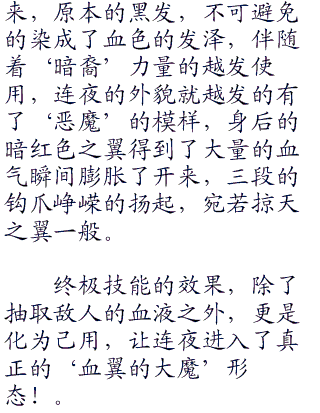 来，原本的黑发，不可避免
的染成了血色的发泽，伴随
着‘暗裔’力量的越发使
用，连夜的外貌就越发的有
了‘恶魔’的模样，身后的
暗红色之翼得到了大量的血
气瞬间膨胀了开来，三段的
钩爪峥嵘的扬起，宛若掠天
之翼一般。
终极技能的效果，除了
抽取敌人的血液之外，更是
化为己用，让连夜进入了真
正的‘血翼的大魔’形
态！。